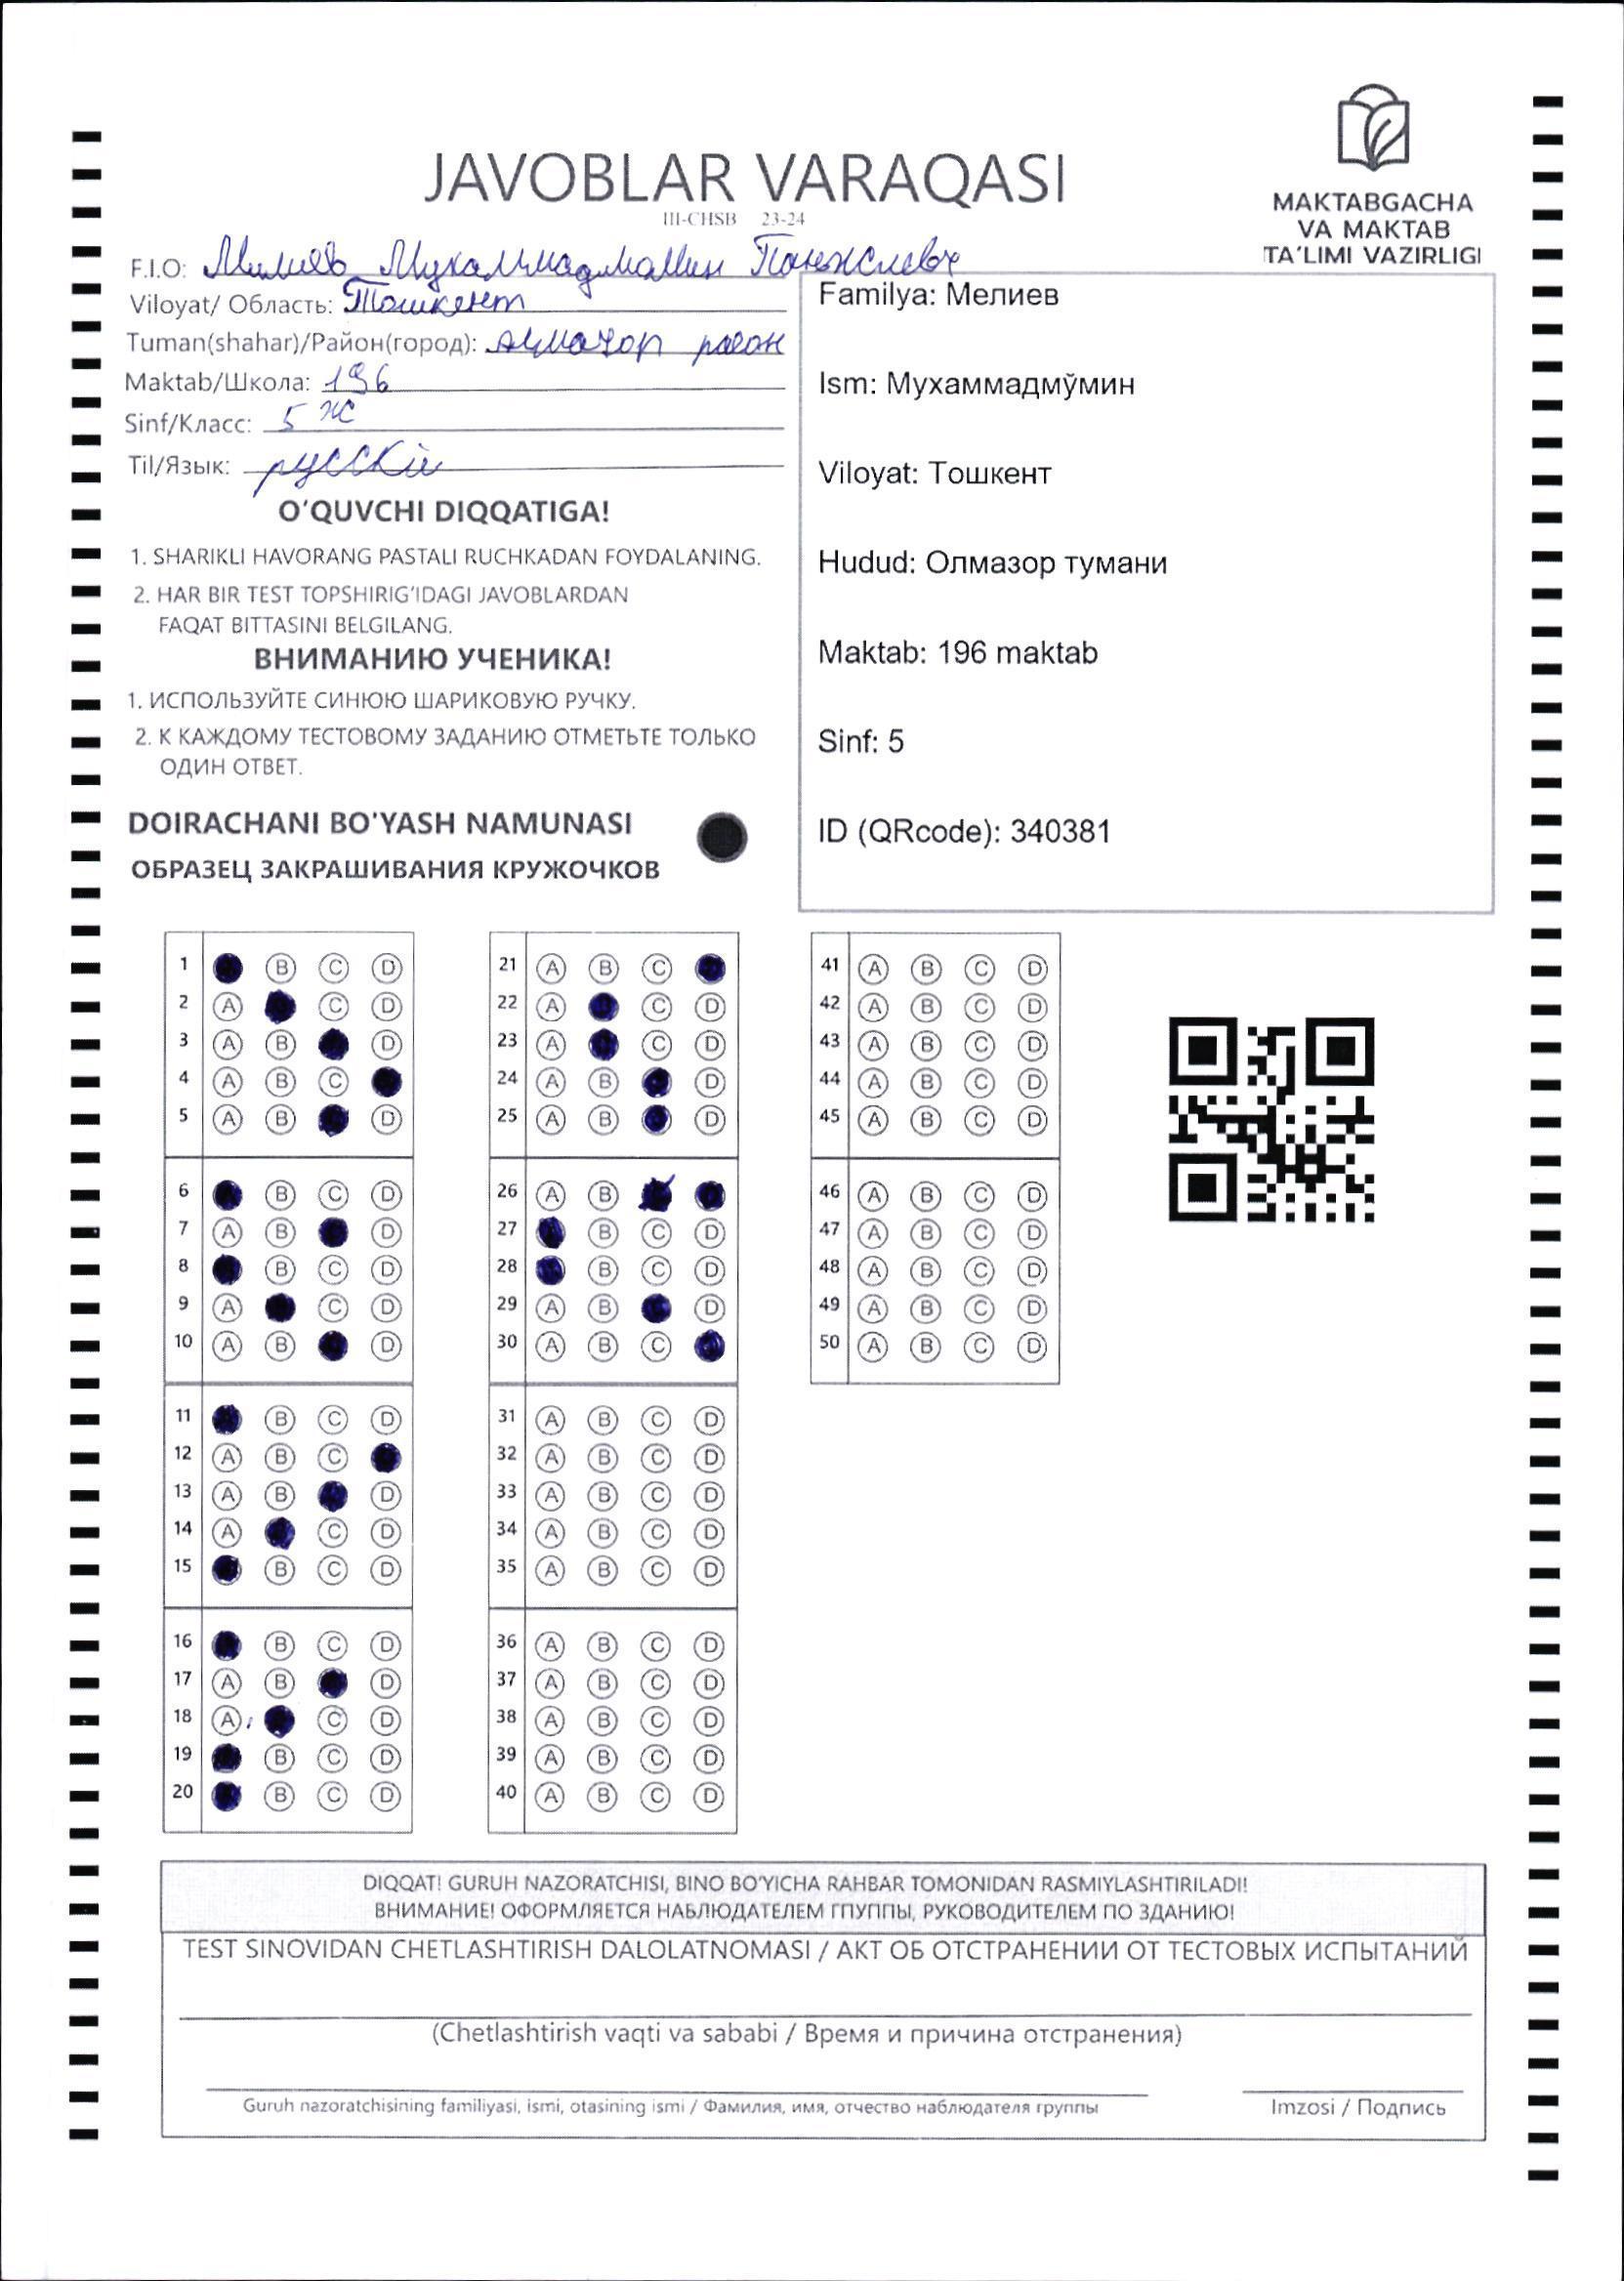 JAVOBLAR VARAQASI
III-CHSB 23-24
MAKTABGACHA
VA MAKTAB
TA'LIMI VAZIRLIGI
F.I.O: Мелиев Мухаммадмумин
Viloyat/ Область: Тошкент
Tuman(shahar)/Район(город): Алмазор район
Maktab/Школа: 196
Sinf/Класс: 5 ж
Til/Язык: русский
O'QUVCHI DIQQATIGA!
1. SHARIKLI HAVORANG PASTALI RUCHKADAN FOYDALANING.
2. HAR BIR TEST TOPSHIRIG'IDAGI JAVOBLARDAN
FAQAT BITTASINI BELGILANG.
ВНИМАНИЮ УЧЕНИКА!
1. ИСПОЛЬЗУЙТЕ СИНЮЮ ШАРИКОВУЮ РУЧКУ.
2. К КАЖДОМУ ТЕСТОВОМУ ЗАДАНИЮ ОТМЕТЬТЕ ТОЛЬКО
ОДИН ОТВЕТ.
DOIRACHANI BO'YASH NAMUNASI
ОБРАЗЕЦ ЗАКРАШИВАНИЯ КРУЖОЧКОВ
Familya: Мелиев
Ism: Мухаммадмўмин
Viloyat: Тошкент
Hudud: Олмазор тумани
Maktab: 196 maktab
Sinf: 5
ID (QRcode): 340381
1 B C D
2 A C D
3 A B D
4 A B C
5 A B D
6 B C D
7 A B D
8 B C D
9 A C D
10 A B D
11 B C D
12 A B C
13 A B D
14 A C D
15 B C D
16 B C D
17 A B D
18 A C D
19 B C D
20 B C D
21 A B C
22 A C D
23 A C D
24 A B D
25 A B D
26 A B
27 B C D
28 B C D
29 A B D
30 A B C
31 A B C D
32 A B C D
33 A B C D
34 A B C D
35 A B C D
36 A B C D
37 A B C D
38 A B C D
39 A B C D
40 A B C D
41 A B C D
42 A B C D
43 A B C D
44 A B C D
45 A B C D
46 A B C D
47 A B C D
48 A B C D
49 A B C D
50 A B C D
DIQQAT! GURUH NAZORATCHISI, BINO BO'YICHA RAHBAR TOMONIDAN RASMIYLASHTIRILADI!
ВНИМАНИЕ! ОФОРМЛЯЕТСЯ НАБЛЮДАТЕЛЕМ ГПУППЫ, РУКОВОДИТЕЛЕМ ПО ЗДАНИЮ!
TEST SINOVIDAN CHETLASHTIRISH DALOLATNOMASI / АКТ ОБ ОТСТРАНЕНИИ ОТ ТЕСТОВЫХ ИСПЫТАНИЙ
(Chetlashtirish vaqti va sababi / Время и причина отстранения)
Guruh nazoratchisining familiyasi, ismi, otasining ismi / Фамилия, имя, отчество наблюдателя группы
Imzosi / Подпись